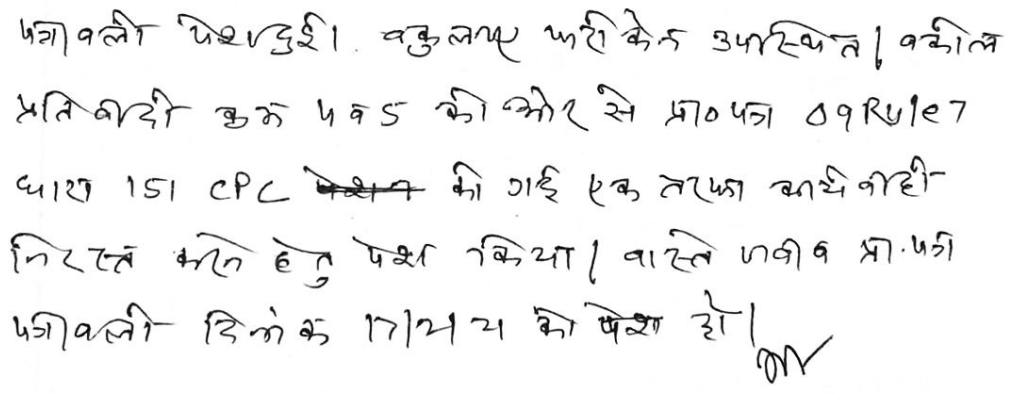 पत्रावली पेश हुई। वकुलाए फरीकेन उपस्थित। वकील
प्रतिवादी क्रम 4 व 5 की ओर से प्रा० पत्र 09 Rule 7
धारा 151 CPC की गई एक तरफा कार्यवाही
निरस्त करने हेतु पेश किया। वास्ते जवाब प्रा. पत्र
पत्रावली दिनांक को पेश हो।